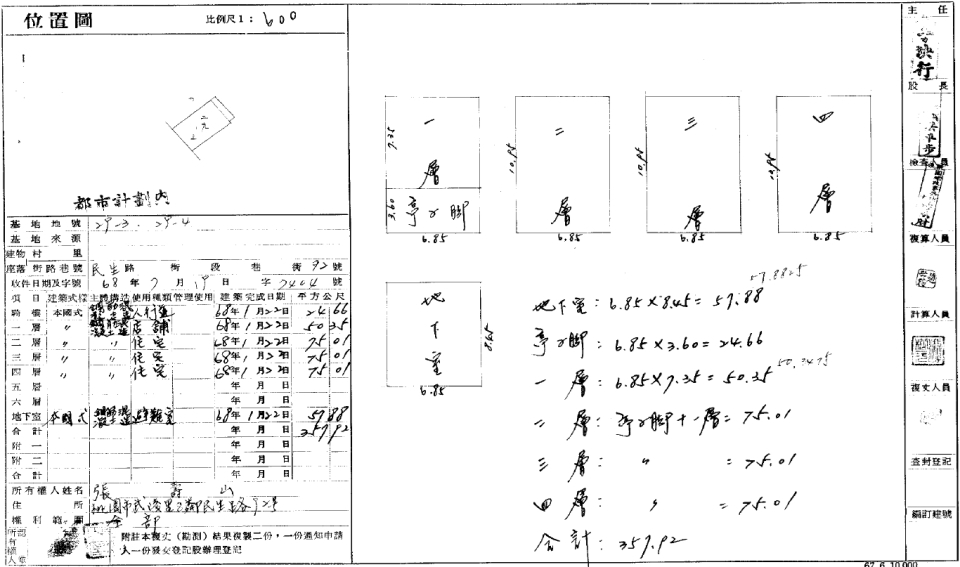 位置圖
比例尺1：600
都市計劃內
基地地號 29-3．29-4
基地來源
建物村里
座落街路巷號 民生路 街 段 巷 街 92 號
收件日期及字號 68年7月19日 字 2404 號
項目 建築式樣 主體構造 使用種類 管理使用 建築完成日期 平方公尺
騎樓 本國式 人行道 68年1月22日 24 66
一層 〃 店鋪 68年1月22日 50 35
二層 〃 〃 住宅 68年1月22日 75 01
三層 〃 〃 住宅 68年1月22日 75 01
四層 〃 〃 住宅 68年1月22日 75 01
五層 年 月 日
六層 年 月 日
地下室 本國式 避難室 68年1月22日 57 88
合計 年 月 日 357 92
附一 年 月 日
附二 年 月 日
合計 年 月 日
所有權人姓名 張壽山
住所
權利範圍 全部
附註本複丈（勘測）結果複製二份，一份通知申請
人一份發交登記股辦理登記
一層
7.35
3.60
亭仔腳
6.85
二層
10.95
6.85
三層
10.95
6.85
四層
10.95
6.85
地下室
8.45
6.85
57.8825
地下室：6.85×8.45=57.88
亭仔腳：6.85×3.60=24.66
50.3475
一層：6.85×7.35=50.35
二層：亭仔腳+一層=75.01
三層：〃=75.01
四層：〃=75.01
合計：357.92
主任
股長
檢查人員
複算人員
計算人員
複丈人員
查封登記
編訂建號
67.6.10,000